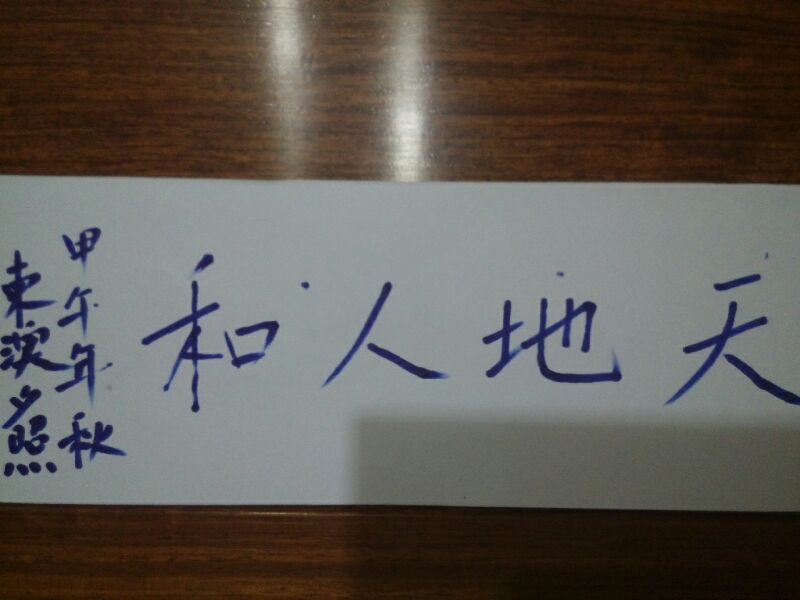 天地人和
甲午年秋
東照